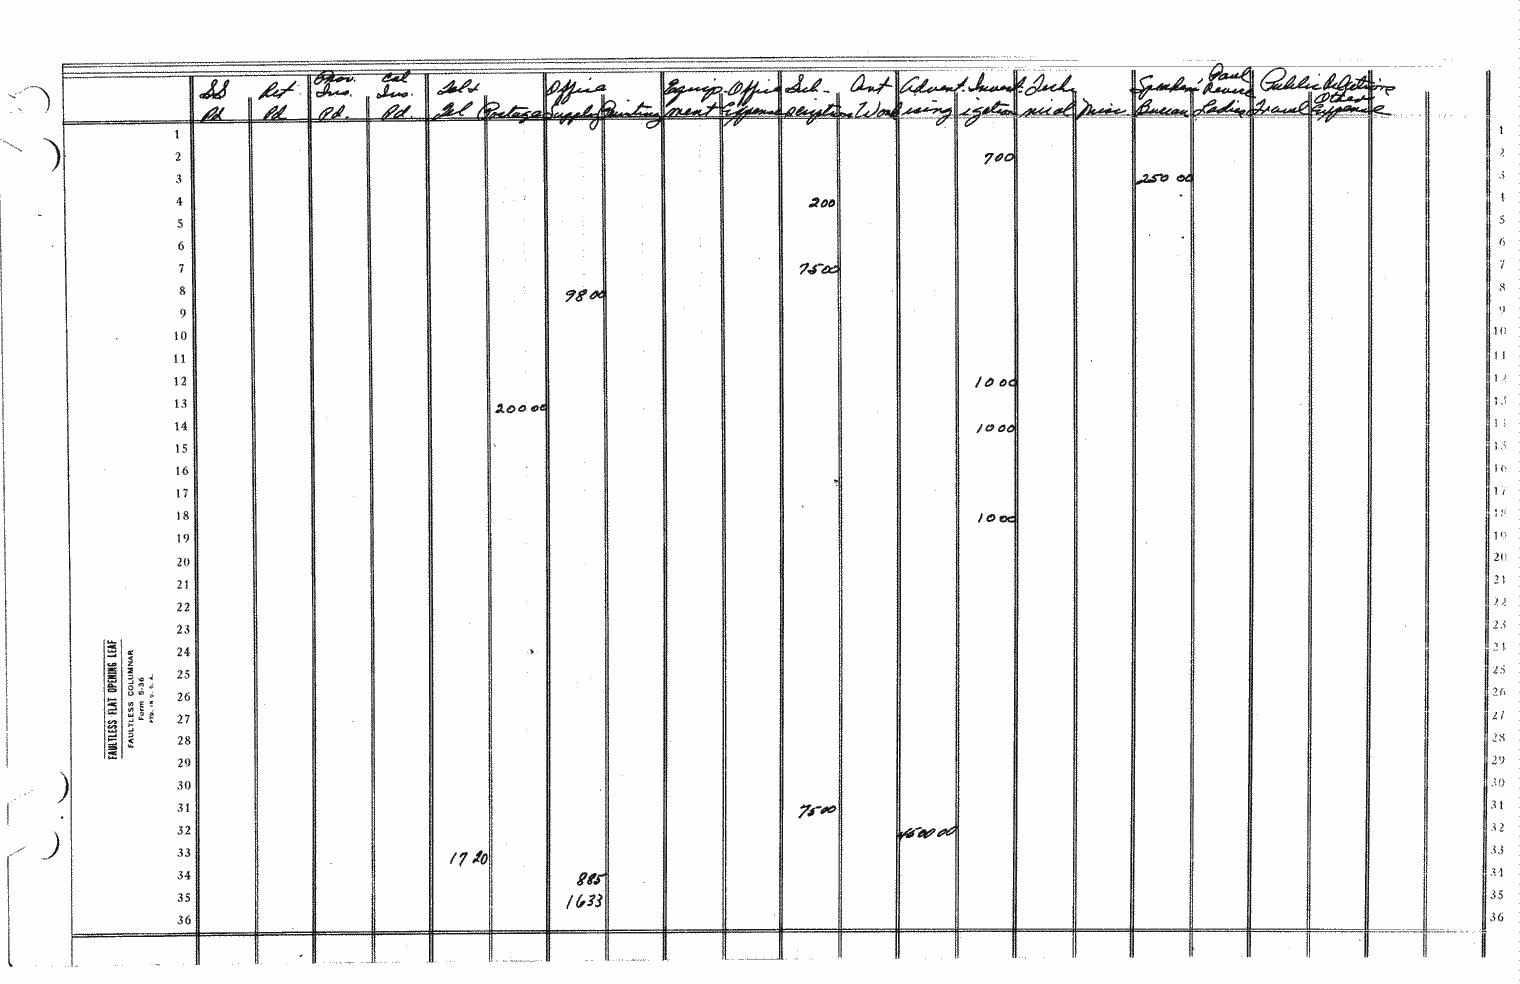 SS Pd
Ret Pd
Ins. Pd.
Cal Ins. Pd.
Tel & Tel
Postage
Office Supply
Printing
Equip- ment
Office Expense
Sub- scription
Art Work
Advert- ising
Invest- igation
Tech- nical
Misc
Speakers' Bureau
Paul Revere Ladies
Public Relations
Travel
Other Expense
1 1
2 700 2
3 250 00 3
4 200 4
5 5
6 6
7 7500 7
8 98 00 8
9 9
10 10
11 11
12 10 00 12
13 200 00 13
14 10 00
15 15
16 16
17 17
18 10 00 18
19 19
20 20
21 21
22 22
23 23
24 24
25 25
26 26
27 27
28 28
29 29
30 30
31 7500 31
32 4500 00 32
33 17 20 33
34 885 34
35 1633 35
36 36
FAULTLESS FLAT OPENING LEAF
FAULTLESS COLUMNAR
Form S-36
PTD. IN U. S. A.